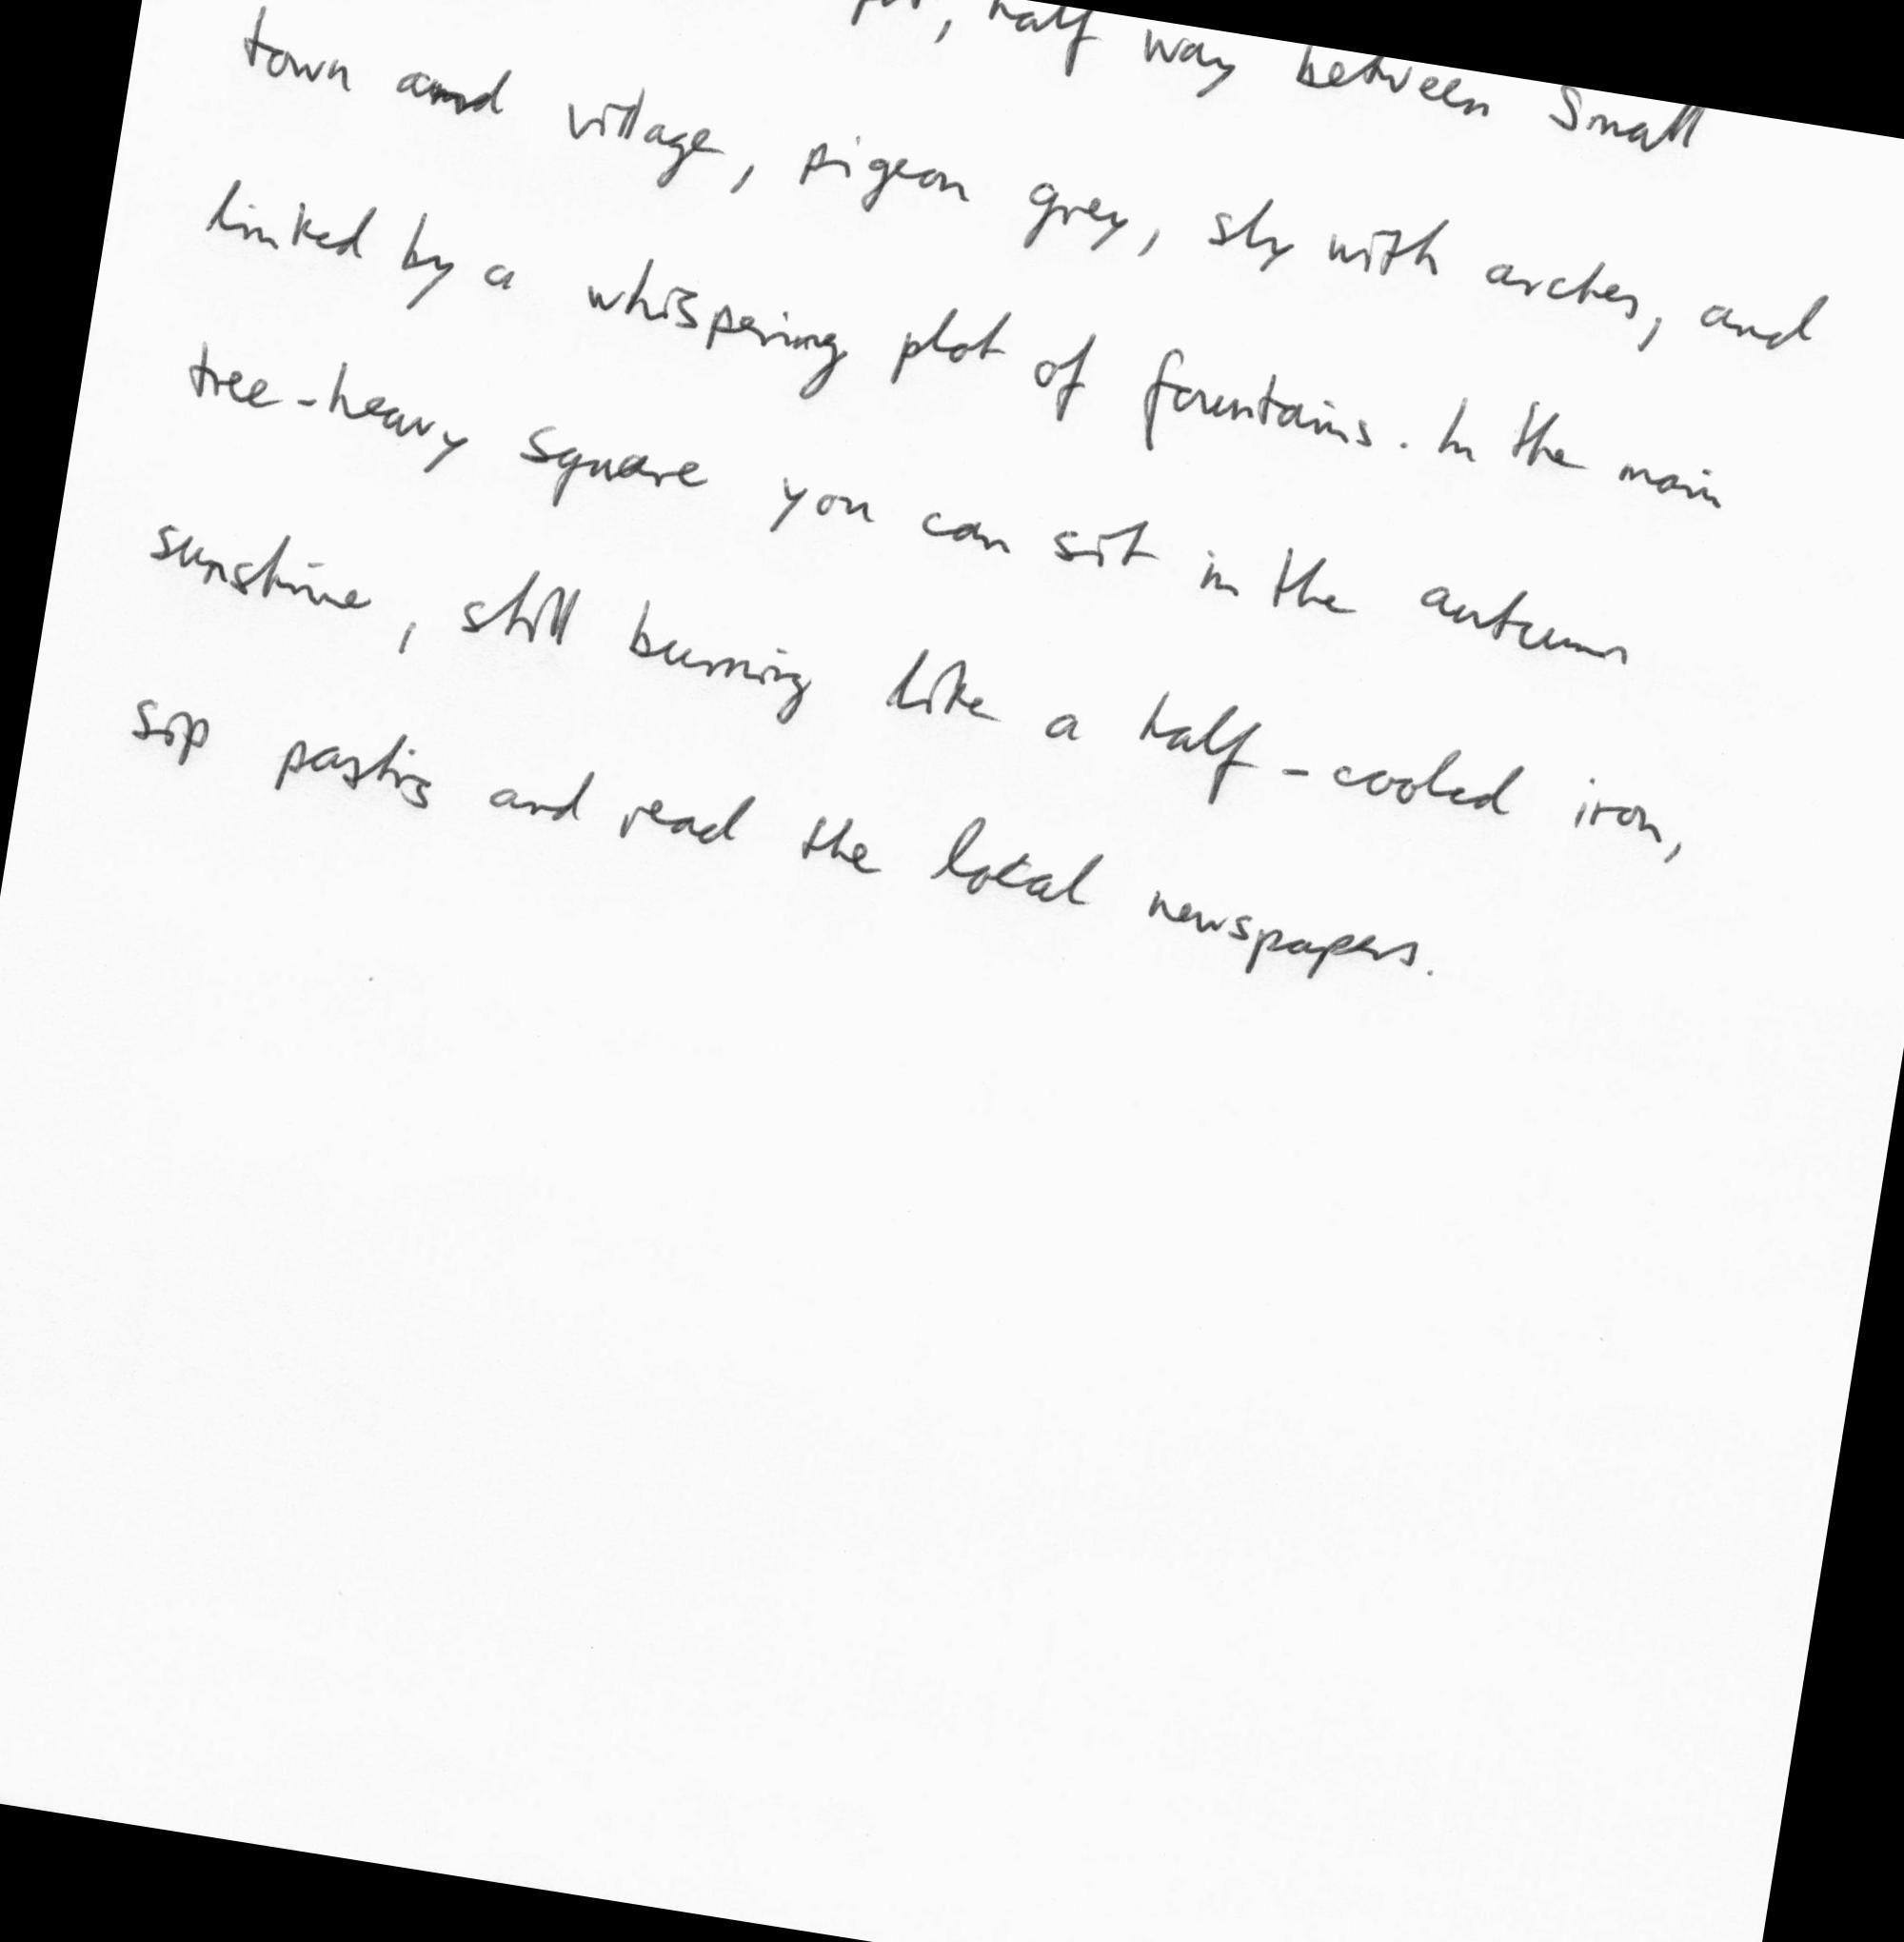 , half way between small
town and village, pigeon grey, sly with arches, and
linked by a whispering plot of fountains. In the main
tree-heavy square you can sit in the autumn
sunshine, still burning like a half-cooled iron,
sip pastis and read the local newspapers.